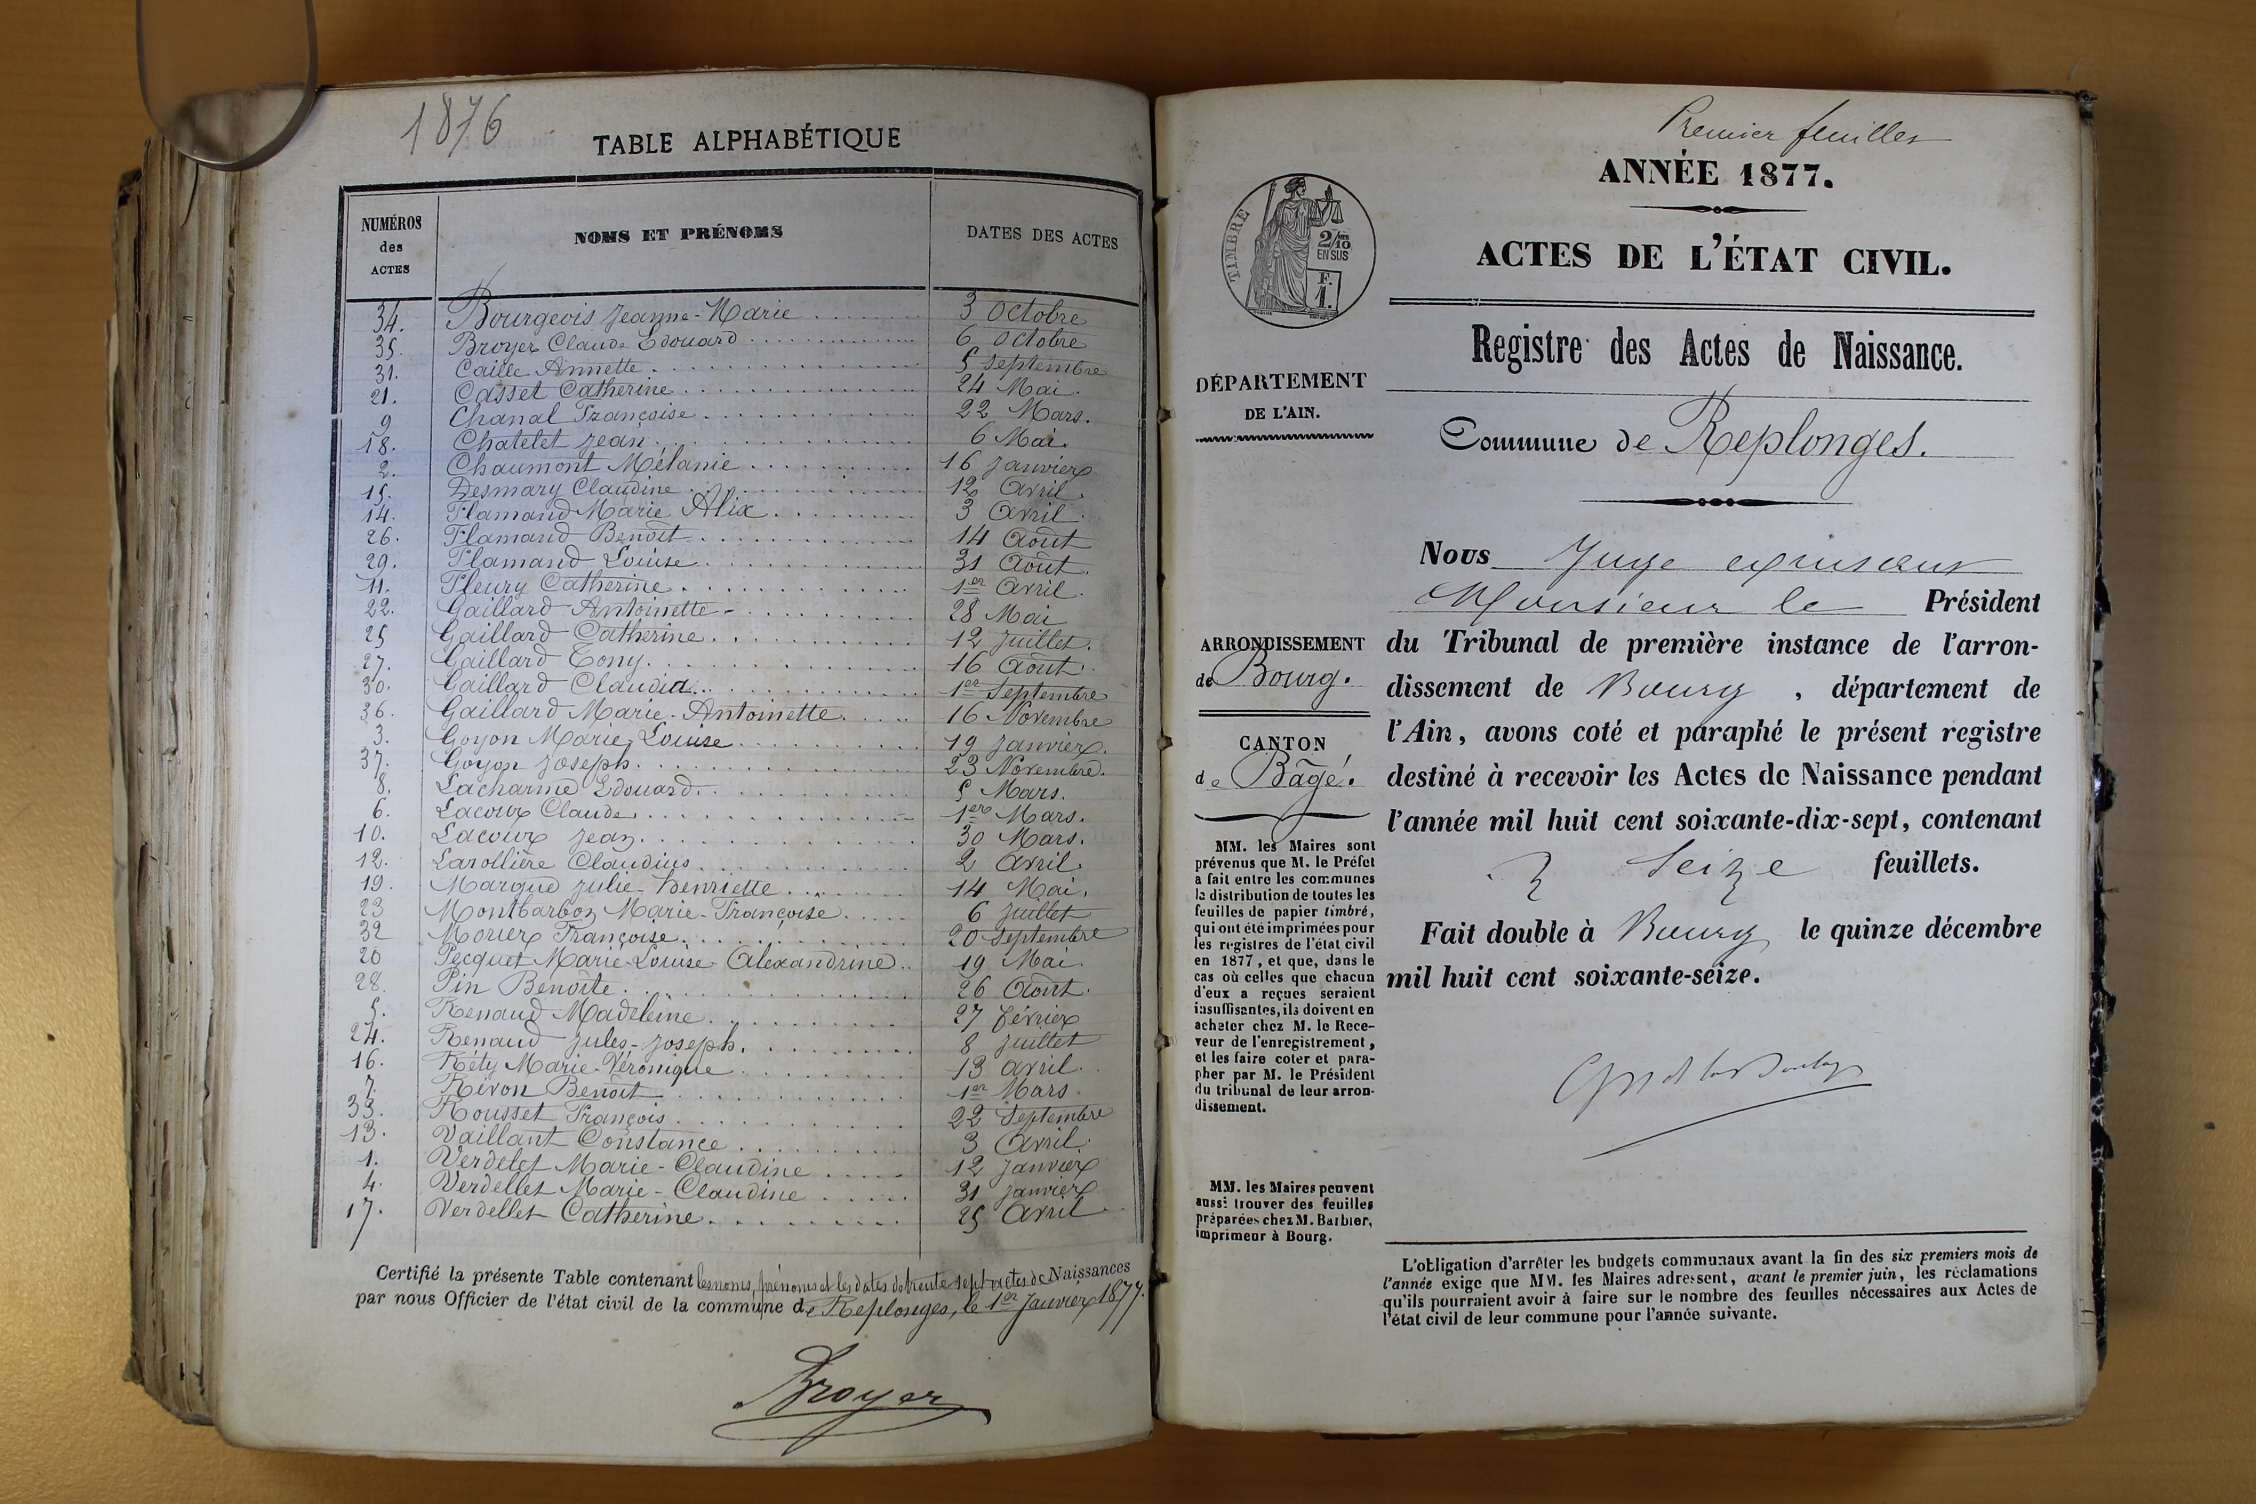 1876
TABLE ALPHABÉTIQUE
NUMÉROS des ACTES NOMS ET PRÉNOMS DATES DES ACTES
34. Bourgeois Jeanne-Marie 3 Octobre
35. Broyer Claude Edouard 6 Octobre
31. Caille Annette 5 Septembre
21. Casset Catherine 24 Mai.
9 Chanal Françoise 22 Mars.
18. Chatelet Jean 6 Mai.
2. Chaumont Mélanie 16 Janvier
15. Desmary Claudine 12 Avril.
14. Flamand Marie Alix 3 Avril.
26. Flamand Benoît 14 Août
29. Flamand Louise 31 Août.
11. Fleury Catherine 1er Avril.
22. Gaillard Antoinette 28 Mai
25 Gaillard Catherine 12 Juillet.
27. Gaillard Tony 16 Août.
30. Gaillard Claudia 1er Septembre
36. Gaillard Marie-Antoinette 16 Novembre
3. Goyon Marie Louise 19 Janvier.
37. Goyon Joseph 23 Novembre.
8. Lacharme Edouard 5 Mars.
6. Lacour Claude 1er Mars.
10. Lacour Jean 30 Mars.
12. Larollière Claudius 2 Avril.
19. Margue Julie-henriette 14 Mai.
23 Montbarbon Marie-Françoise 6 Juillet
32 Morier Françoise 20 Septembre
20 Pecquet Marie-Louise-Alexandrine 19 Mai
28. Pin Benoîte 26 Août.
5. Renaud Madeleine 27 Février
24. Renaud Jules-Joseph. 8 Juillet
16. Réty Marie-Véronique 13 avril.
7. Rivon Benoît 1er Mars.
33. Rousset François 22 Septembre
13. Vaillant Constance 3 Avril.
1. Verdelet Marie-Claudine 12 Janvier
4. Verdellet Marie-Claudine 31 Janvier
17. Verdellet Catherine 25 Avril
Certifié la présente Table contenant les noms, prénoms et les dates de trente sept actes de Naissances
par nous Officier de l'état civil de la commune de Replonges, le 1er Janvier 1877.
Broyer
Premier feuillet
ANNÉE 1877.
ACTES DE L'ÉTAT CIVIL.
TIMBRE
2/10 EN SUS
F. 1.
Registre des Actes de Naissance.
DÉPARTEMENT
DE L'AIN.
Commune de Replonges.
Nous Juge
Monsieur le Président
du Tribunal de première instance de l'arron-
dissement de Bourg, département de
l'Ain, avons coté et paraphé le présent registre
destiné à recevoir les Actes de Naissance pendant
l'année mil huit cent soixante-dix-sept, contenant
Seize feuillets.
Fait double à Bourg le quinze décembre
mil huit cent soixante-seize.
ARRONDISSEMENT
de Bourg.
CANTON
de Bâgé.
MM. les Maires sont
prévenus que M. le Préfet
a fait entre les communes
la distribution de toutes les
feuilles de papier timbré,
qui ont été imprimées pour
les registres de l'état civil
en 1877, et que, dans le
cas où celles que chacun
d'eux a reçues seraient
insuffisantes, ils doivent en
acheter chez M. le Rece-
veur de l'enregistrement,
et les faire coter et para-
pher par M. le Président
du tribunal de leur arron-
dissement.
MM. les Maires peuvent
aussi trouver des feuilles
préparées chez M. Barbier,
imprimeur à Bourg.
L'obligation d'arrêter les budgets communaux avant la fin des six premiers mois de
l'année exige que MM. les Maires adressent, avant le premier juin, les réclamations
qu'ils pourraient avoir à faire sur le nombre des feuilles nécessaires aux Actes de
l'état civil de leur commune pour l'année suivante.